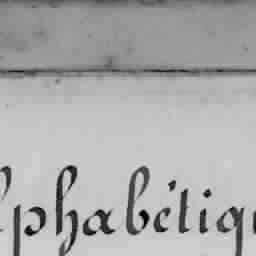 lphabétiqu